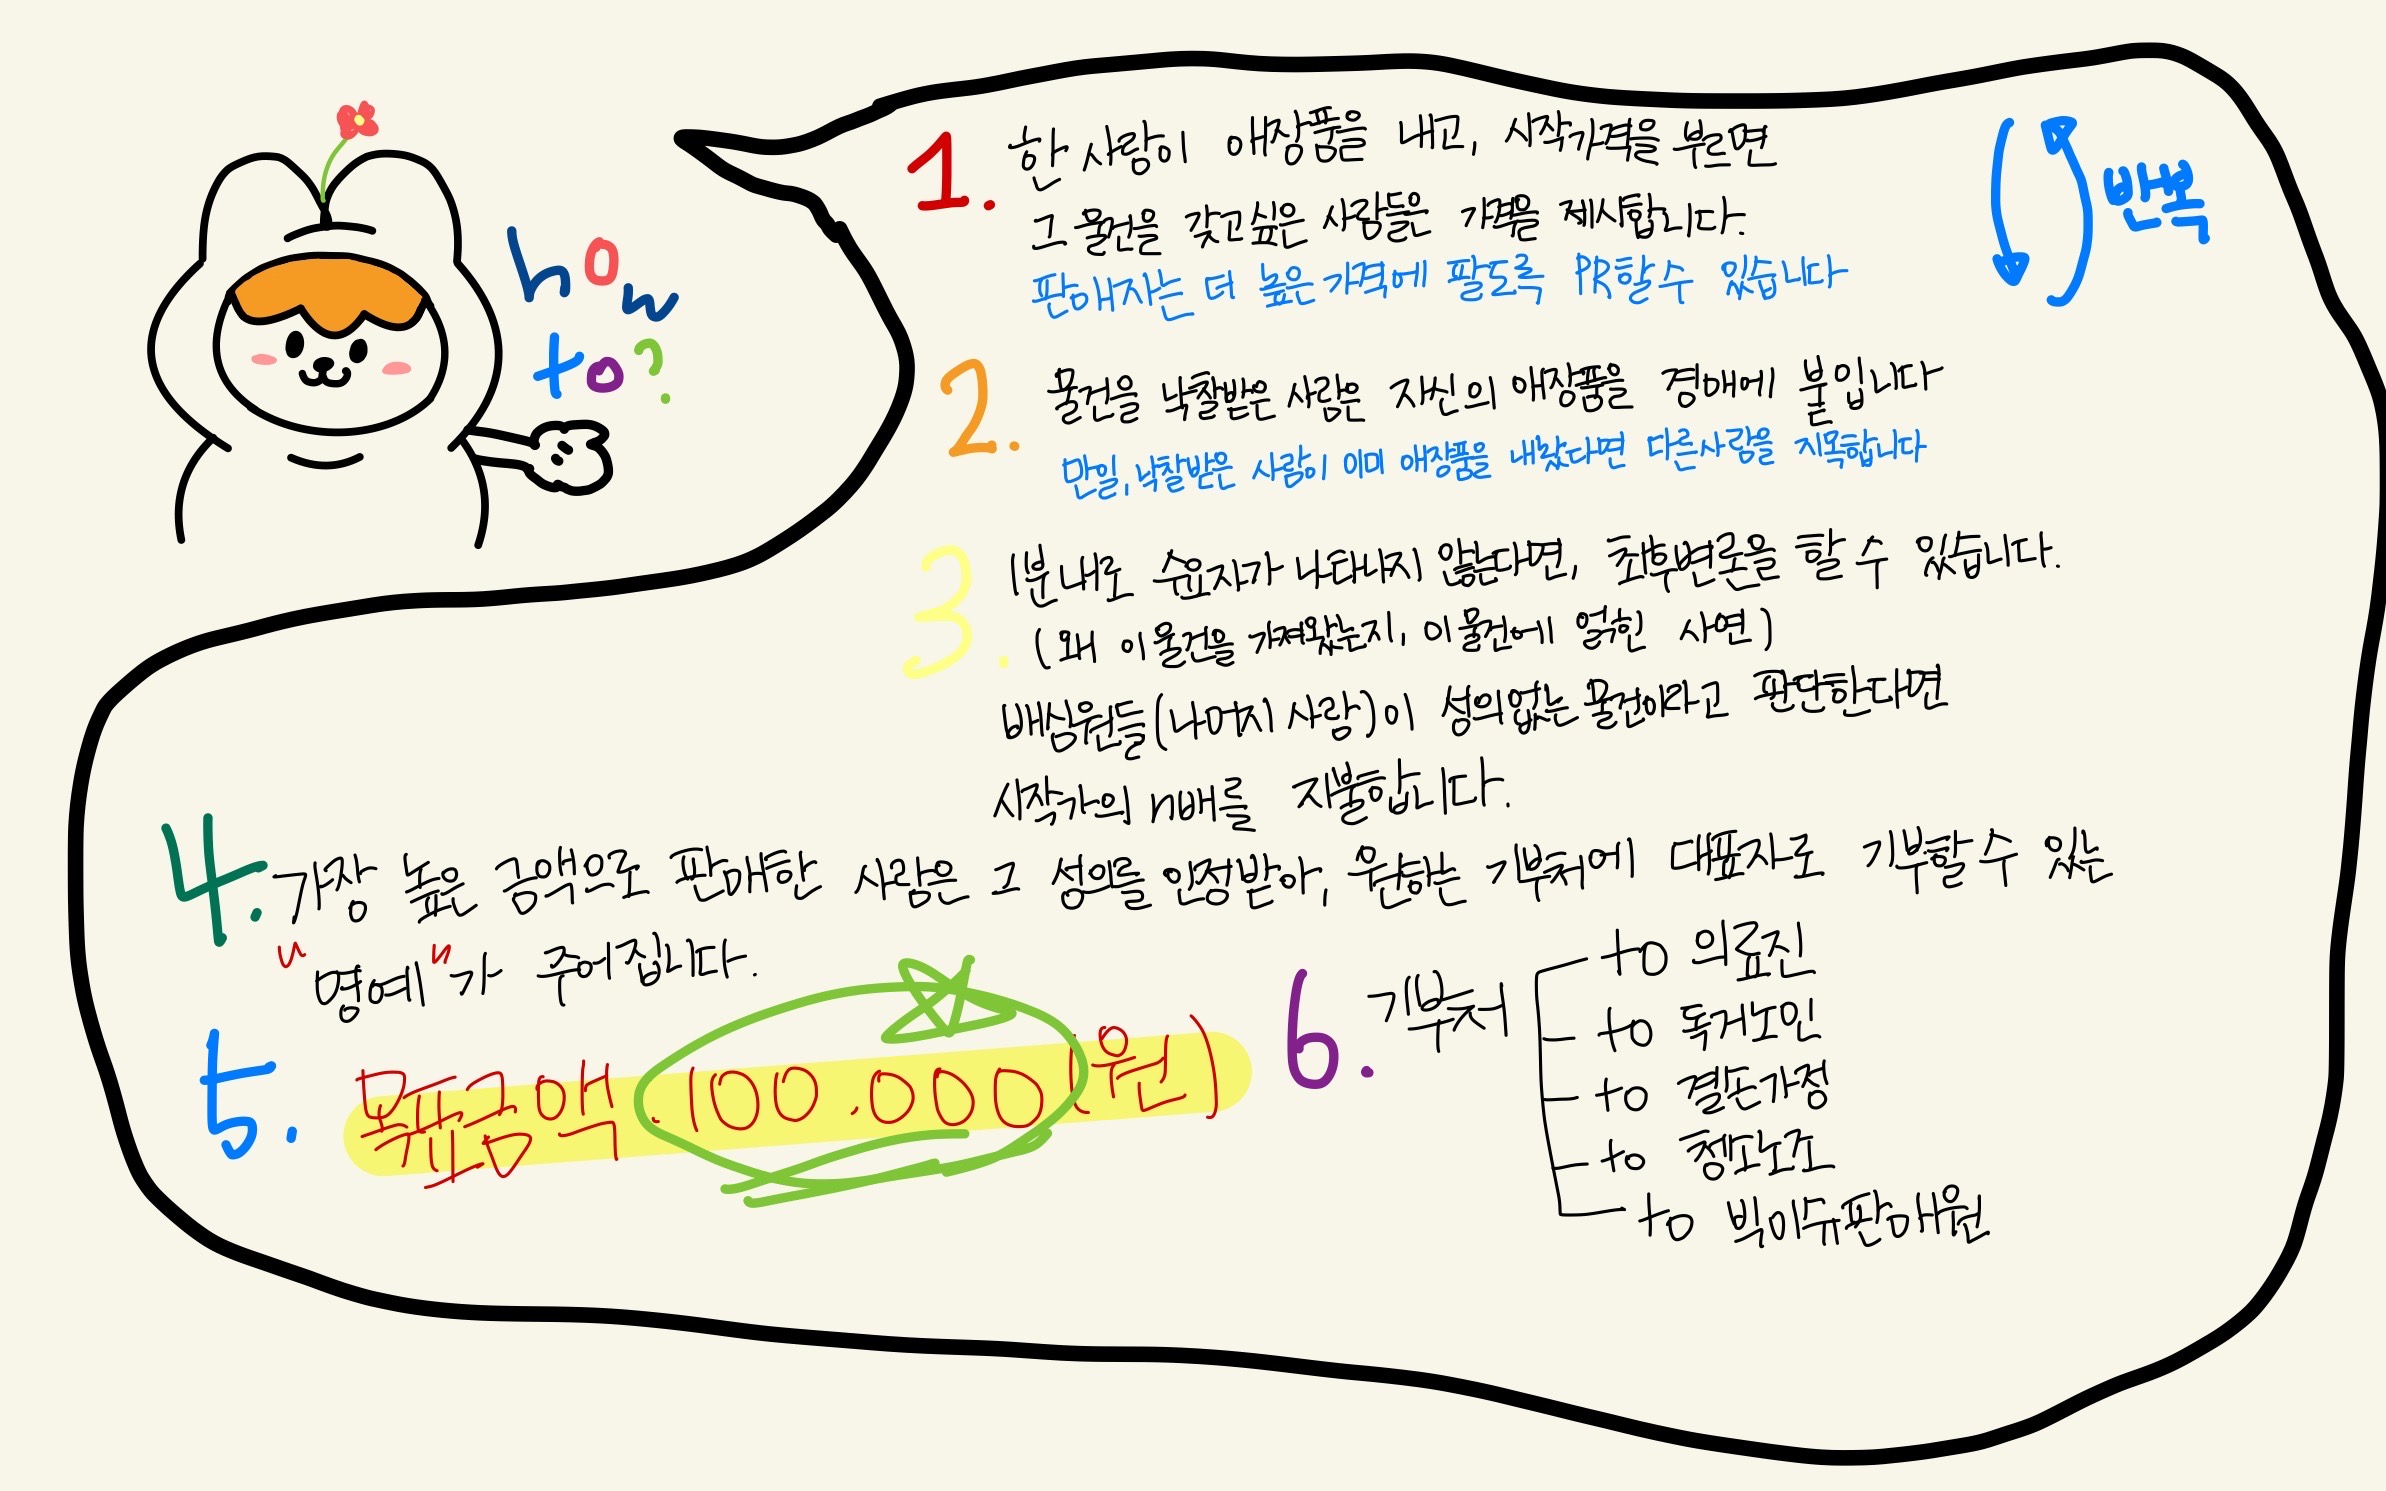 how
to?
1. 한 사람이 애장품을 내고, 시작가격을 부르면
그 물건을 갖고싶은 사람들은 가격을 제시합니다.
판매자는 더 높은 가격에 팔도록 PR할 수 있습니다
반복
2. 물건을 낙찰받은 사람은 자신의 애장품을 경매에 붙입니다
만일, 낙찰받은 사람이 이미 애장품을 내놨다면 다른사람을 지목합니다
3. 1분내로 수요자가 나타나지 않는다면, 최후변론을 할 수 있습니다.
(왜 이 물건을 가져왔는지, 이 물건에 얽힌 사연)
배심원들(나머지 사람)이 성의없는 물건이라고 판단한다면
시작가의 n배를 지불합니다.
4. 가장 높은 금액으로 판매한 사람은 그 성의를 인정받아, 원하는 기부처에 대표자로 기부할 수 있는
"명예"가 주어집니다.
5. 목표금액 .100.000(원)
6. 기부처
to 의료진
to 독거노인
to 결손가정
to 청소노조
to 빅이슈판매원